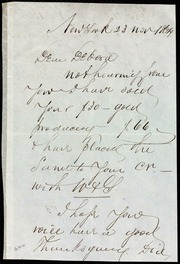 New York 23 Nov 1864
Dear Deborah
Not hearing from
you I have sold
your $30 - gold
producing $66
& have placed the
same to your cr -
with W&G
I hope you
will have a good
Thanksgiving Did